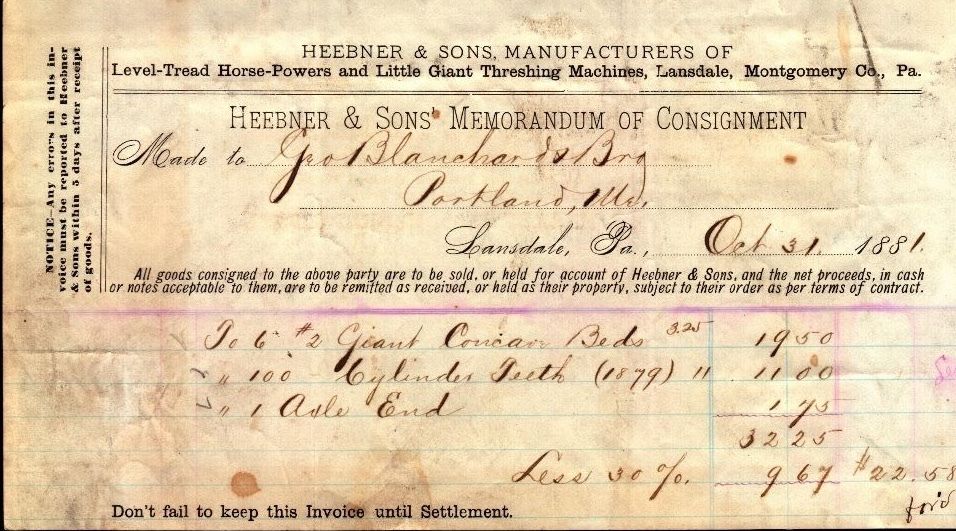 HEEBNER & SONS, MANUFACTURERS OF
Level-Tread Horse-Powers and Little Giant Threshing Machines, Lansdale, Montgomery Co., Pa.
NOTICE—Any errors in this in-
voice must be reported to Heebner
& Sons within 5 days after receipt
of goods.
HEEBNER & SONS' MEMORANDUM OF CONSIGNMENT
Made to Geo Blanchard & Bro
Portland, Me.
Lansdale, Pa., Oct. 31. 1881.
All goods consigned to the above party are to be sold, or held for account of Heebner & Sons, and the net proceeds, in cash
or notes acceptable to them, are to be remitted as received, or held as their property, subject to their order as per terms of contract.
To 6 #2 Giant Concave Beds 3.25 19 50
" 100 Cylinder Teeth (1879) 11 11 00
" 1 Axle End 1 75
32 25
Less 30 %. 9 67 $22.58
Don't fail to keep this Invoice until Settlement.